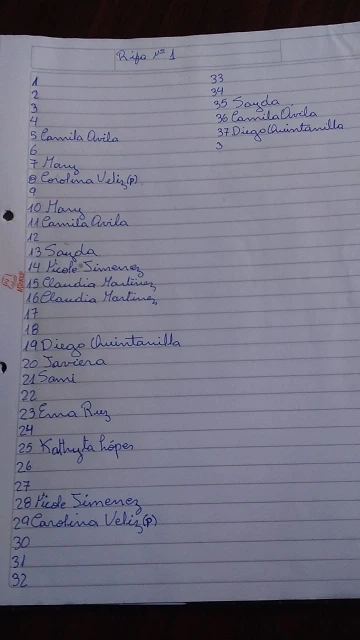 Rifa nº 1
1
2
3
4
5 Camila Avila
6
7 Mary
8 Carolina Veliz (p)
9
10 Mary
11 Camila Avila
12
13 Sayda
14 Nicole Simenez
15 Claudia Martinez
16 Claudia Martinez
17
18
19 Diego Quintanilla
20 Javiera
21 Sami
22
23 Ema Ruz
24
25 Kathyta Lópes
26
27
28 Nicole Simenez
29 Carolina Veliz (p)
30
31
32
33
34
35 Sayda
36 Camila Avila
37 Diego Quintanilla
3